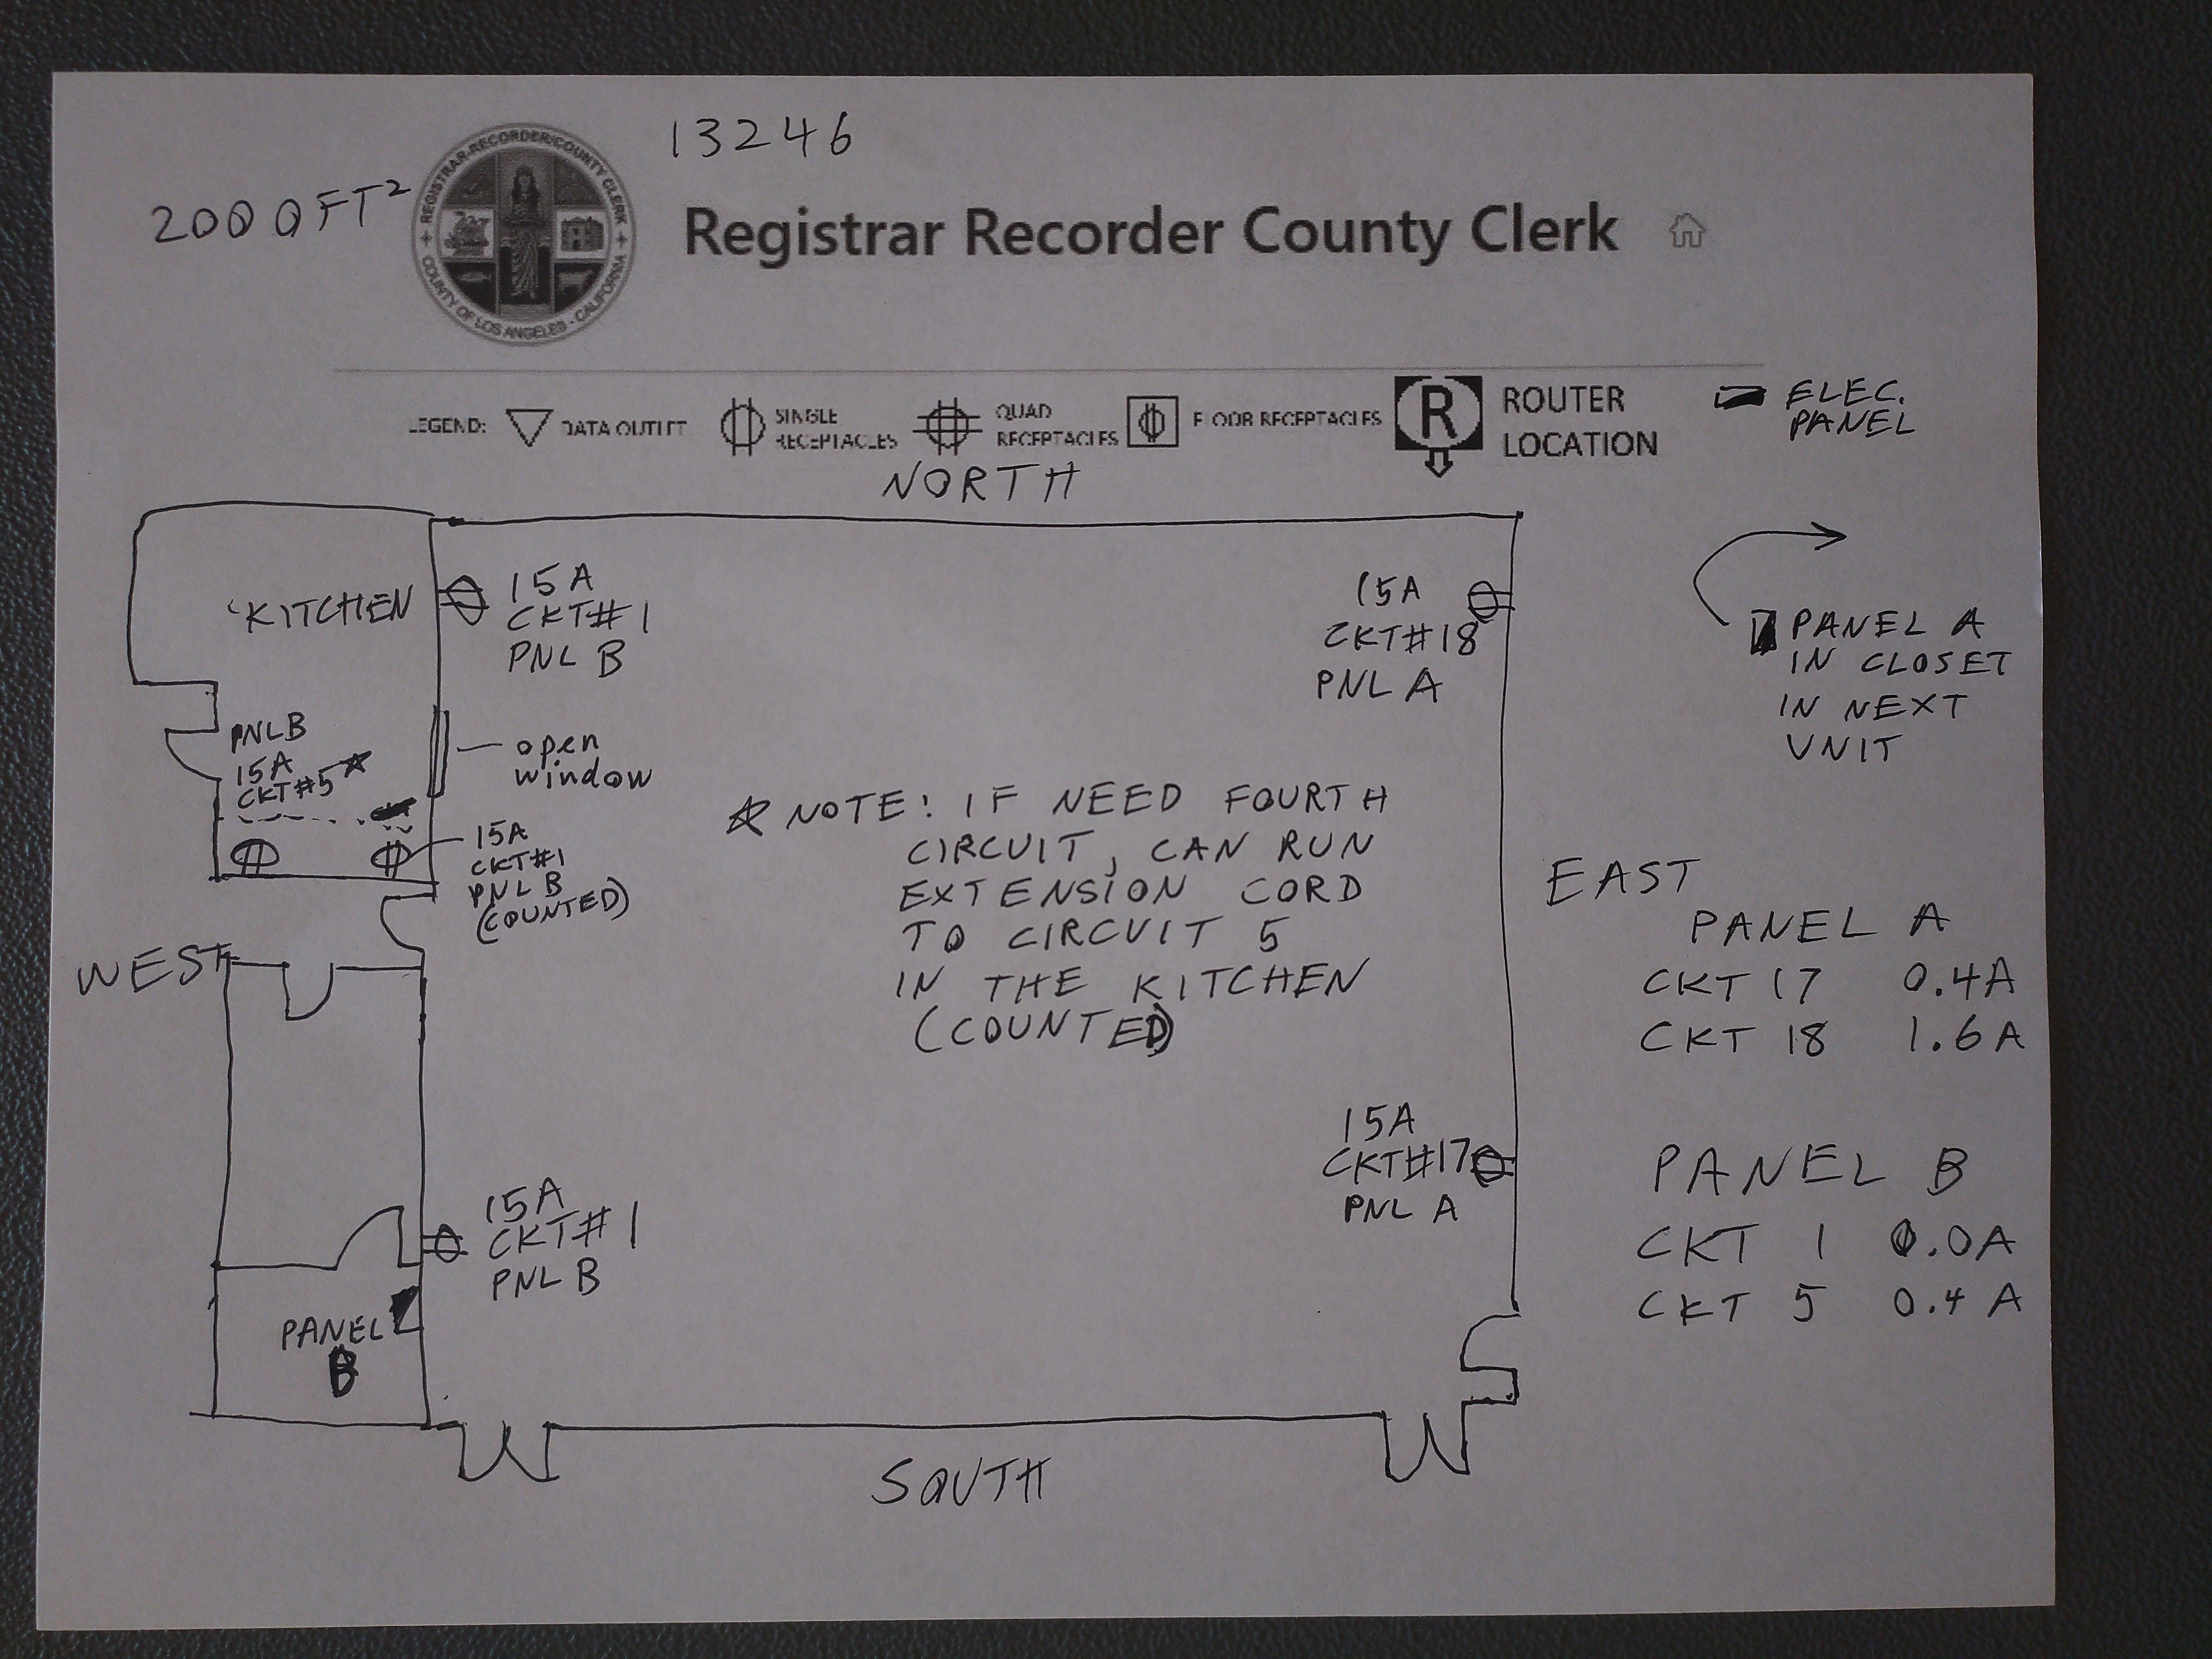 13246
2000 FT²
REGISTRAR-RECORDER/COUNTY CLERK
COUNTY OF LOS ANGELES - CALIFORNIA
Registrar Recorder County Clerk
LEGEND:
DATA OUTLET
SINGLE
RECEPTACLES
QUAD
RECEPTACLES
FLOOR RECEPTACLES
R
ROUTER
LOCATION
ELEC.
PANEL
NORTH
KITCHEN
15A
CKT#1
PNL B
15A
CKT#18
PNL A
PANEL A
IN CLOSET
IN NEXT
UNIT
PNL B
15A
CKT#5
open
window
15A
CKT#1
PNL B
(COUNTED)
NOTE: IF NEED FOURTH
CIRCUIT, CAN RUN
EXTENSION CORD
TO CIRCUIT 5
IN THE KITCHEN
(COUNTED)
EAST
WEST
PANEL A
CKT 17 0.4A
CKT 18 1.6A
15A
CKT#17
PNL A
PANEL B
CKT 1 0.0A
CKT 5 0.4A
15A
CKT#1
PNL B
PANEL
B
SOUTH